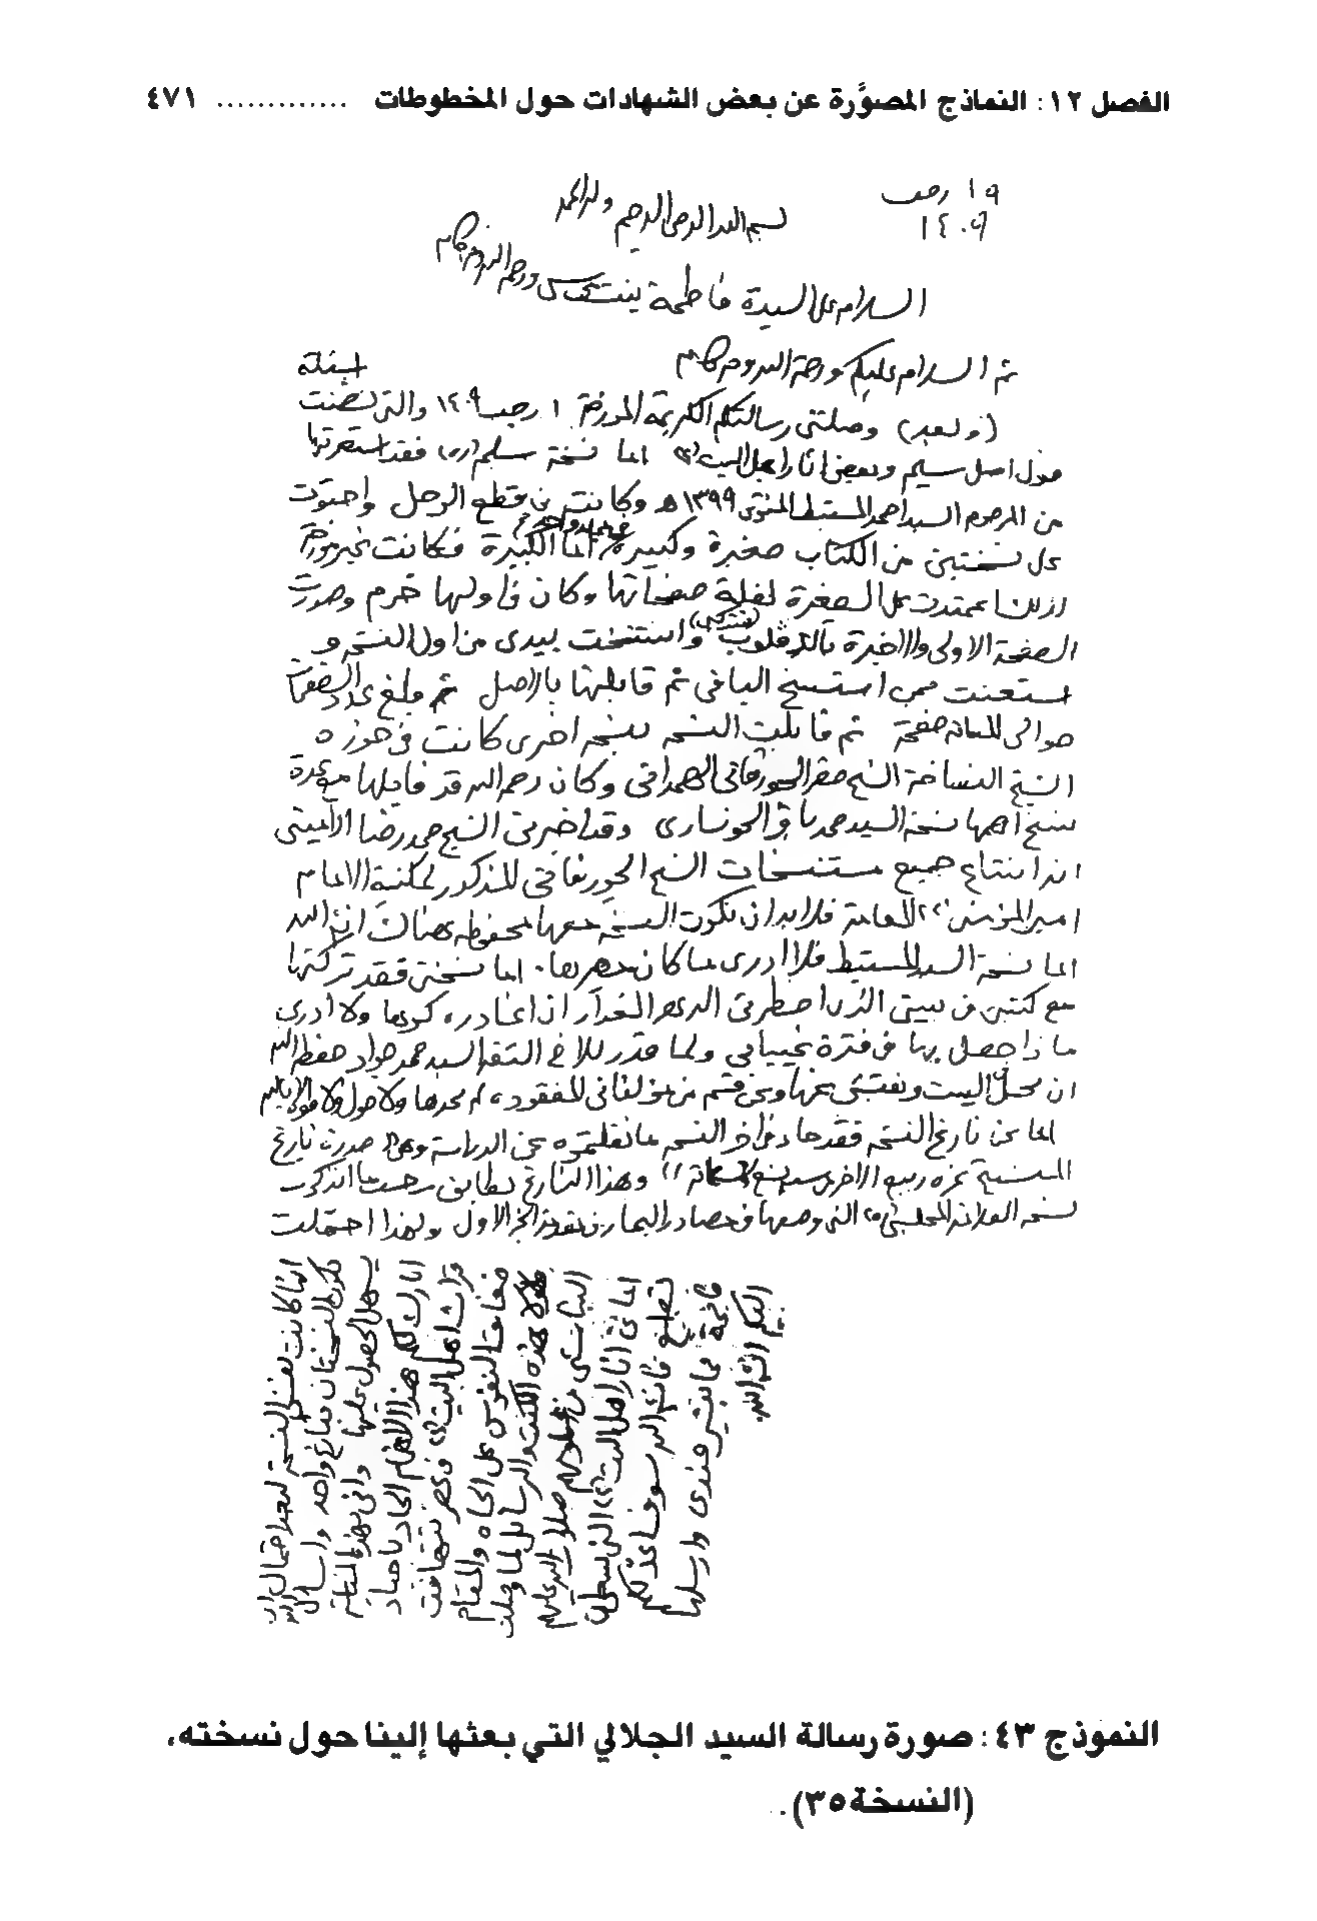 الفصل ١٢: النماذج المصوَّرة عن بعض الشهادات حول المخطوطات ............. ٤٧١
١٩ رجب
١٤٠٩
بسم الله الرحمن الرحيم وله الحمد
السلام على السيدة فاطمة بنت ورحمة الله وبركاته
ثم السلام عليكم ورحمة الله وبركاته
(وبعد) وصلتني رسالتكم الكريمة المؤرخة ١ رجب ١٤٠٩ والتي تضمنت اسئلة
حول اصل سليم وبعض آثار اهل البيت (ع) اما نسخة سليم (ره) فقد استعرتها
من المرحوم السيد احمد المستنبط المتوفى ١٣٩٩ هـ وكانت من قطع الرحل واحتوت
على نسختين من الكتاب صغيرة وكبيرة في مجلد واحد اما الكبيرة فكانت غير مؤرخة
لذلك اعتمدت على الصغيرة لقلة صفحاتها وكان في اولها خرم وصورت
الصفحة الاولى والاخيرة واستنسخت بيدي من اول النسخة و
استعنت ممن استنسخ الباقي ثم قابلتها بالاصل ثم وبلغ عدد الصفحات
حوالي المائة صفحة ثم قابلت النسخة بنسخة اخرى كانت في حوزة
الشيخ النساخة الشيخ الجورقاني الهمداني وكان رحمه الله قد قابلها مع عدة
نسخ اهمها نسخة السيد محمد باقر الخونساري وقد اخبرني الشيخ محمد رضا الاميني
انه ابتاع جميع مستنسخات الشيخ الجورقاني المذكور لمكتبة الامام
امير المؤمنين (ع) العامة فلا بد ان تكون النسخة معها محفوظة هناك ان شاء الله
اما نسخة السيد المستنبط فلا ادري ما كان مصيرها. اما نسختي فقد تركتها
مع كتبي في بيتي الذي اضطرني الدهر الغدار ان اغادره كرها ولا ادري
ماذا حصل بها في فترة غيابي ولما قدر للاخ الثقة السيد محمد جواد حفظه الله
ان يحل البيت ويفتش عنها وعن قسم من مؤلفاتي المفقودة لم يجدها ولا حول ولا قوة الا بالله
اما عن تاريخ النسخة فقد جاء في آخر النسخة ما نقلتموه عن الدراسة
غرة ربيع الآخر وهذا التاريخ يطابق
نسخة العلامة المجلسي (ره) التي وصفها في مصادر البحار في الجزء الاول ولهذا احتملت
انها كانت نفس النسخة
تكون النسختان من تاريخ واحد واسأل الله ان
يسهل الحصول عليها واني بهذه المناسبة
ابارك لكم هذا الاهتمام الجاد باحياء
تراث اهل البيت (ع) في عصر تتهافت
ضعاف النفوس على الجاه والمقام
هذه الكتب والرسائل لما وصلت
الينا شيء من علومهم صلوات الله عليهم
اما آثار اهل البيت (ع) التي
الله سوف اعد لكم
قائمة بما تيسر عندي وارسلها
اليكم ان شاء الله
النموذج ٤٣: صورة رسالة السيد الجلالي التي بعثها إلينا حول نسخته،
(النسخة ٣٥).